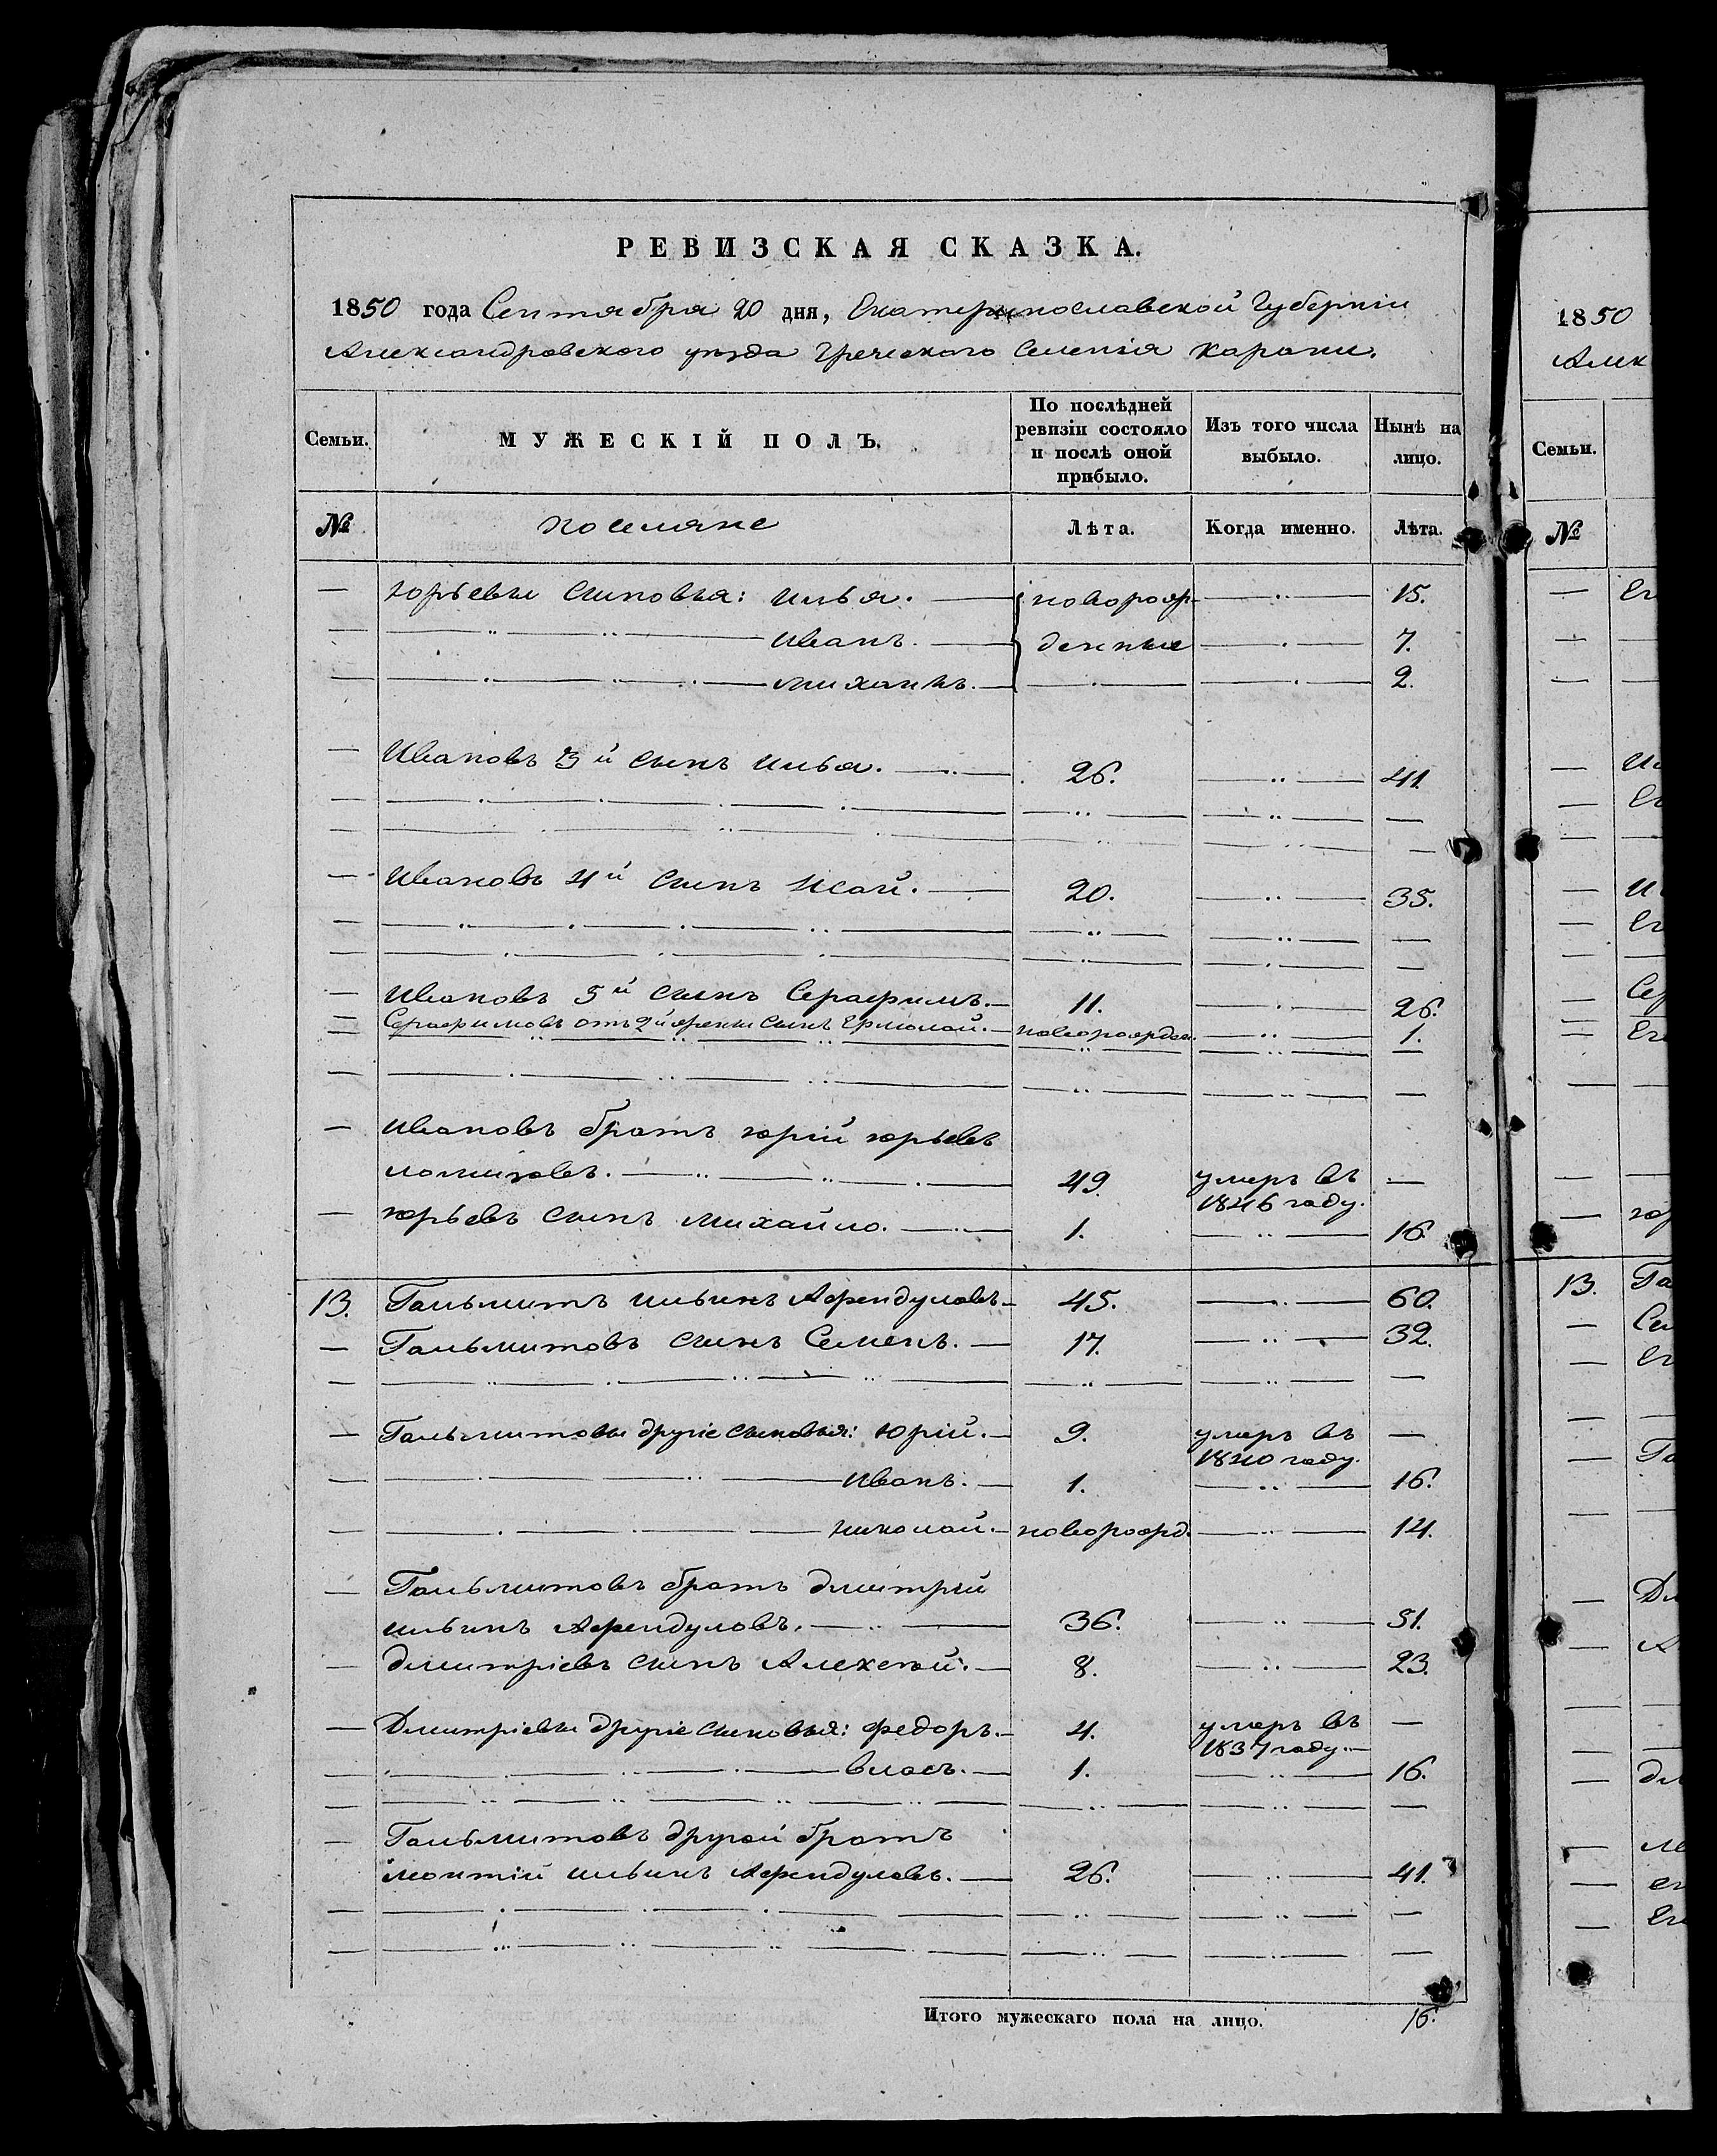 РЕВИЗСКАЯ СКАЗКА.
1850 года Сентября 20 дня, Екатеринославской Губерніи
Александровского уезда Греческого Селенія Карани.
Семьи. МУЖЕСКІЙ ПОЛЪ. По послѣдней ревизіи состояло и послѣ оной прибыло. Изъ того числа выбыло. Нынѣ на лицо.
№ Поселяне Лѣта. Когда именно. Лѣта.
— Юрьевы сыновья: Илья. — новорож- — 15.
— Иванъ. — денные — 7.
— Михаилъ. — — 2.
— Ивановъ 3й сынъ Илья. — 26. — 41.
— Ивановъ 4й сынъ Исай. — 20. — 35.
— Ивановъ 5й сынъ Серафимъ. — 11. — 26.
— Серафимовъ отъ 2й жены сынъ Ермолай. — новорожден. — 1.
— Ивановъ братъ Юрій Юрьевъ
— 49. умеръ въ —
1846 году.
— Юрьевъ сынъ Михайло. — 1. — 16.
13. Гальмитъ Ильинъ Афендуловъ. — 45. — 60.
— Гальмитовъ сынъ Семенъ. — 17. — 32.
— Гальмитовы другіе сыновья: Юрій. — 9. умеръ въ —
1840 году.
— Иванъ. — 1. — 16.
— Николай. — новорожд. — 14.
— Гальмитовъ братъ Дмитрій
Ильинъ Афендуловъ. — 36. — 51.
— Дмитріевъ сынъ Алексѣй. — 8. — 23.
— Дмитріевы другіе сыновья: Федоръ. — 4. умеръ въ —
1837 году. —
— Власъ. — 1. — 16.
— Гальмитовъ другой братъ
Леонтій Ильинъ Афендуловъ. — 26. — 41.
Итого мужескаго пола на лицо. 16.
1850
Алек
Семьи.
№
13.